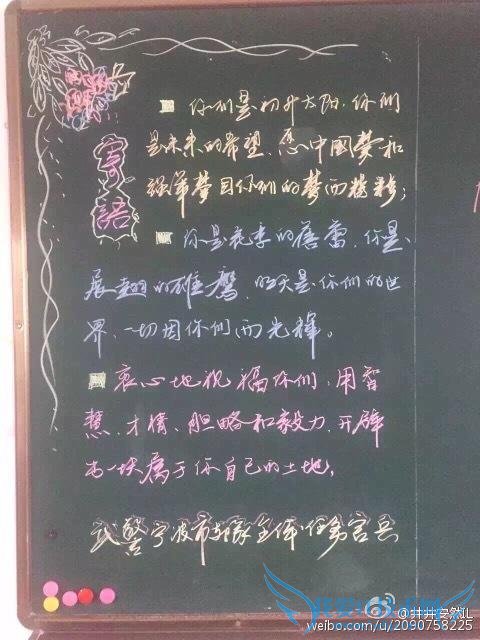 寄語
你们是初升太阳，你们
是未来的希望，愿中国梦和
强军梦因你们的梦而精彩；
你是花季的蓓蕾，你是
展翅的雄鹰，明天是你们的世
界，一切因你们而光辉。
衷心地祝福你们，用智
慧、才情、胆略和毅力，开辟
出一块属于你自己的土地。
武警宁波市支队全体任务官兵
@井井安然儿
weibo.com/u/2090758225